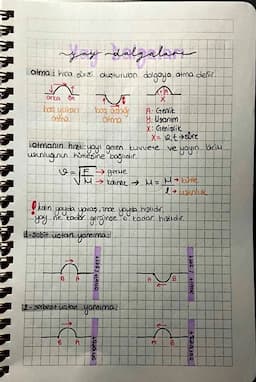 yay dalgaları
atma: kısa süreli oluşturulan dalgaya atma denir.
arka ön
baş yukarı atma
baş aşağı atma
A: Genlik
Y: Uzanım
X: Genişlik
X = v.t → süre
atmanın hızı yayı geren kuvvete ve yayın birim
uzunluğunun kütlesine bağlıdır.
v = √F/μ → gerilme
μ = M → kütle
l → uzunluk
! kalın yayda yavaş, ince yayda hızlıdır.
yay ne kadar gerginse o kadar hızlıdır.
1 - sabit uçtan yansıma:
B A
sabit / sert
A B
sabit / sert
2 - serbest uçtan yansıma:
B A
serbest